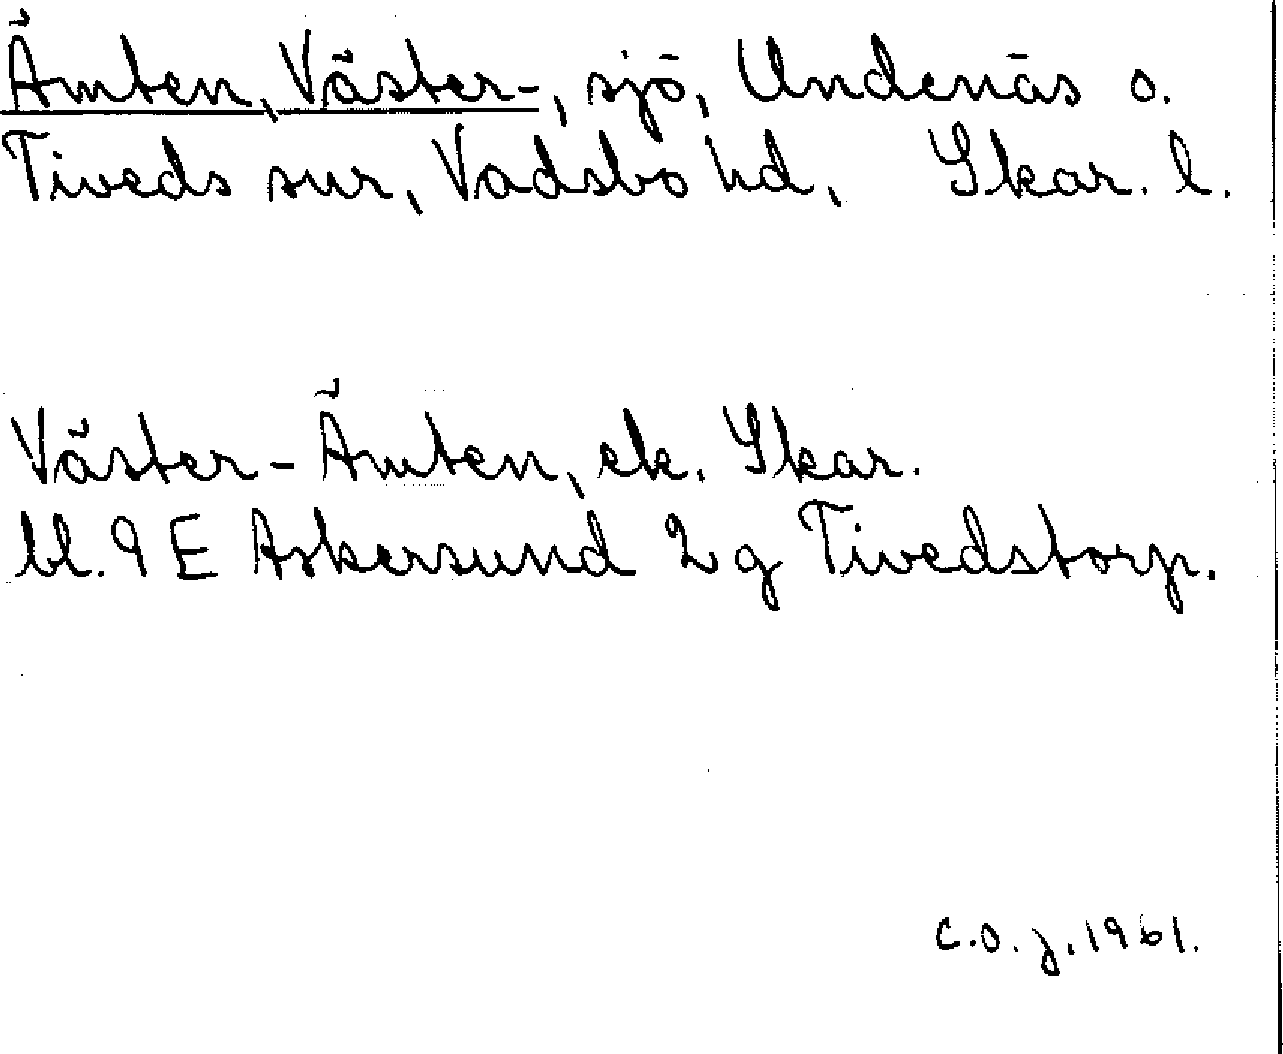 Ämten, Väster-, sjö, Undenäs o.
Tiveds snr, Vadsbo hd, Skar. l.
Väster-Ämten, ek. Skar.
bl. 9 E Askersund 2 g Tivedstorp.
C.O. j. 1961.